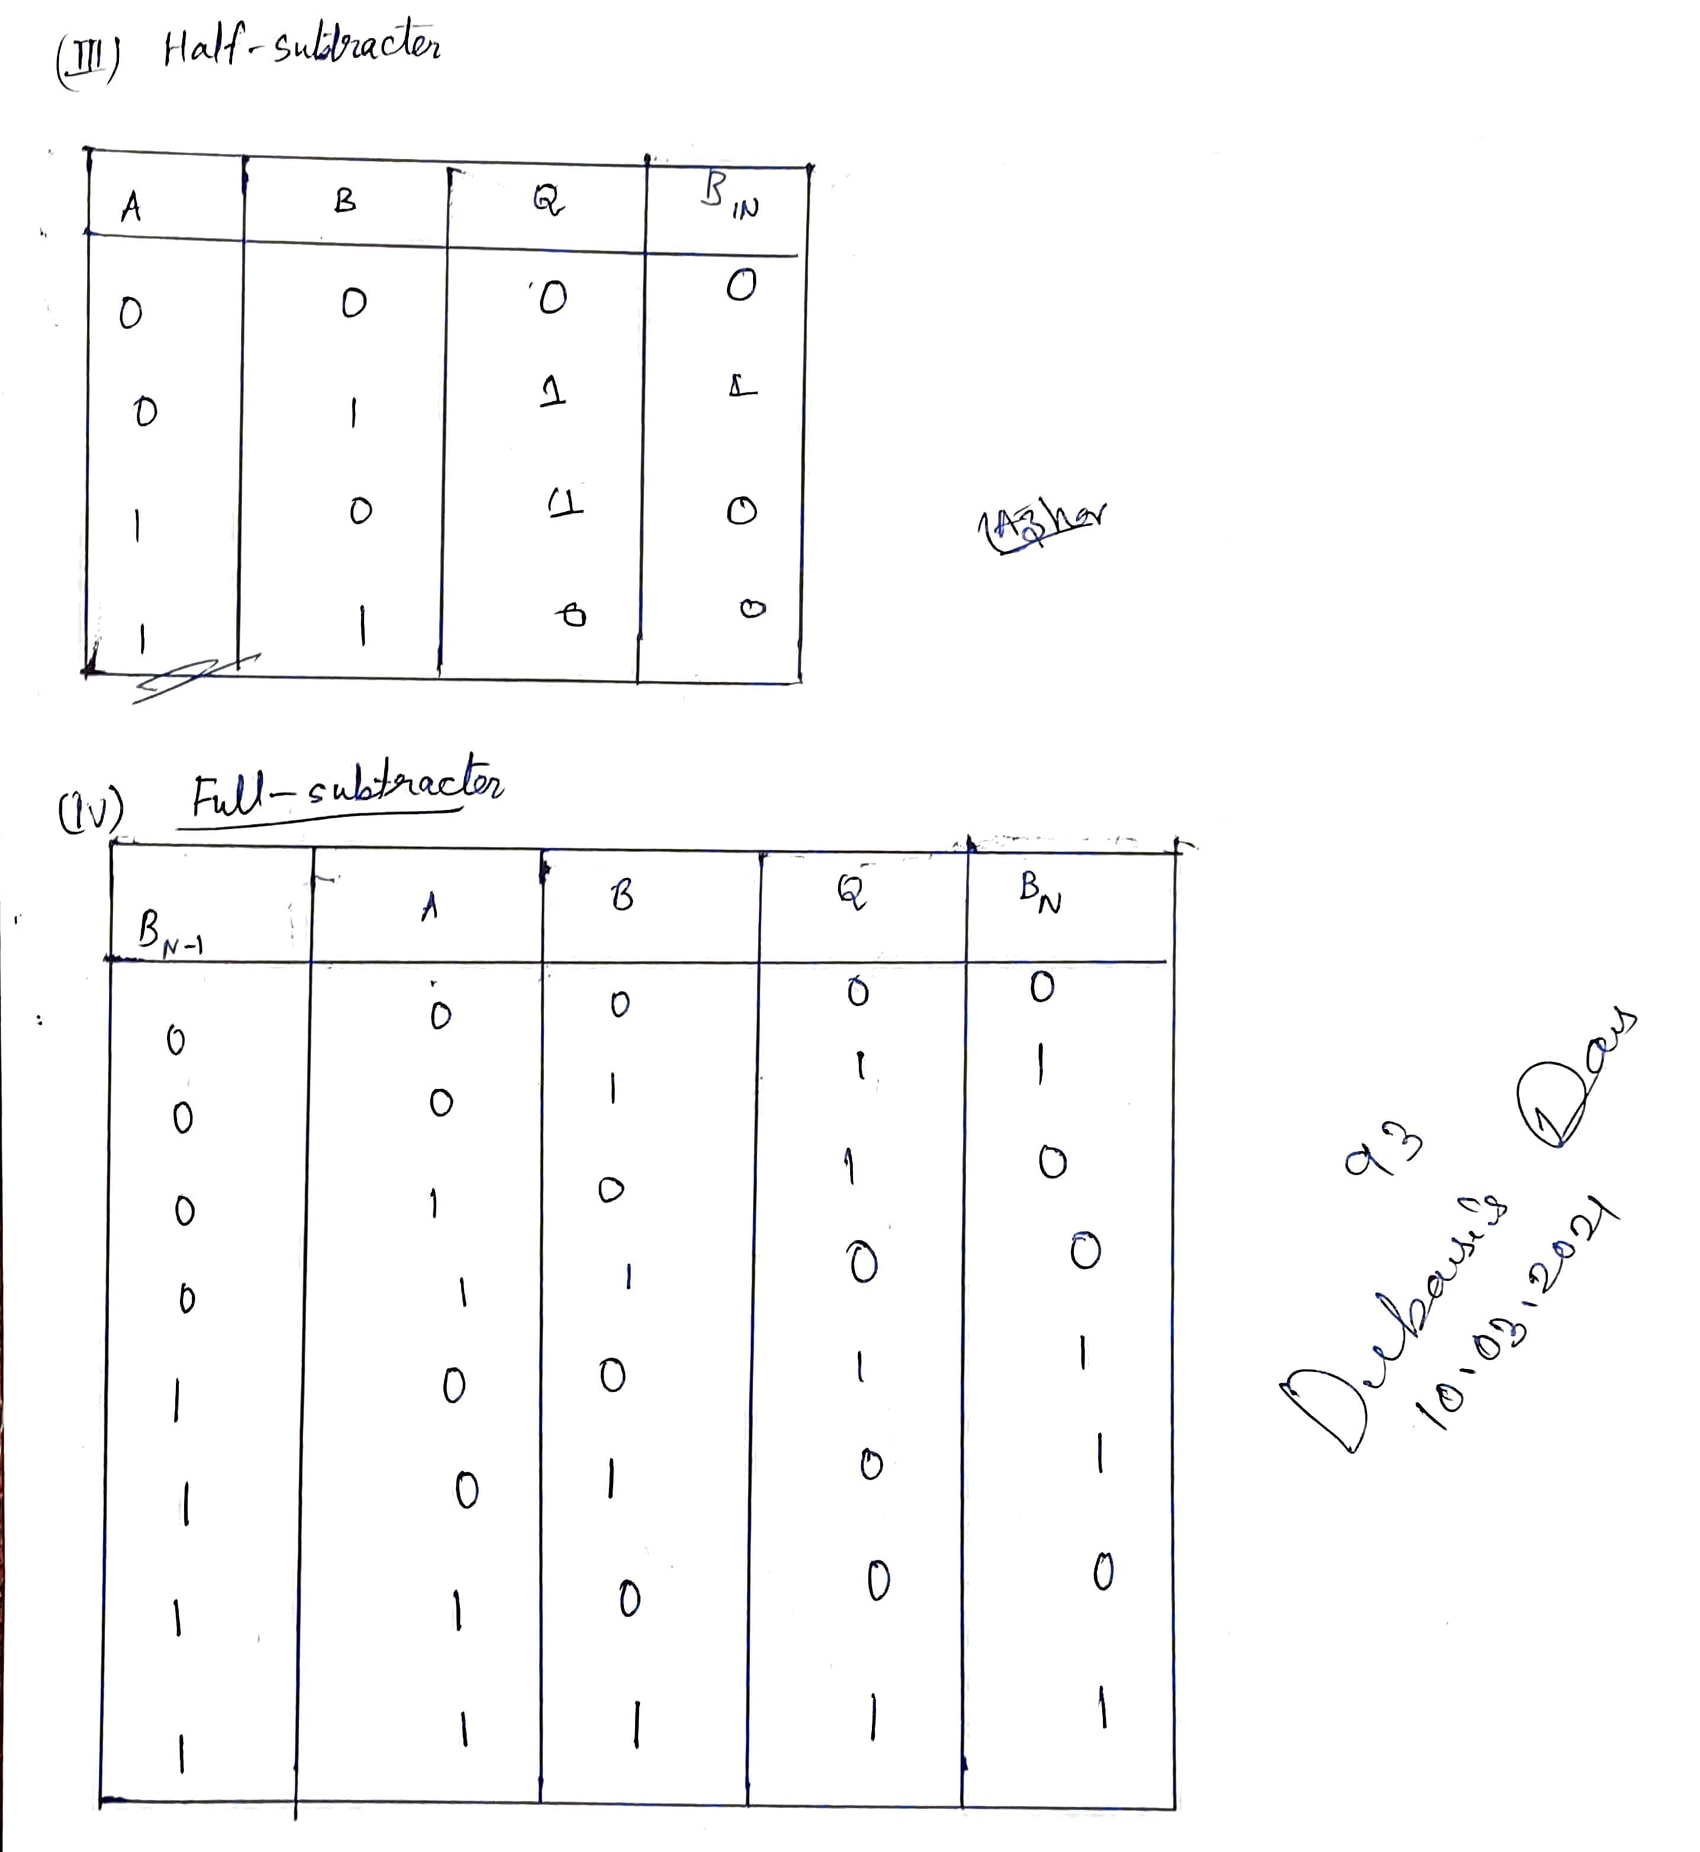 (III) Half-subtracter
A B Q B IN
0 0 0 0
0 1 1 1
1 0 1 0
1 1 0 0
Azhar
(IV) Full-subtracter
B N-1 A B Q B N
0 0 0 0 0
0 0 1 1 1
0 1 0 1 0
0 1 1 0 0
1 0 0 1 1
1 0 1 0 1
1 1 0 0 0
1 1 1 1 1
93
Debasis Das
10.03.2021